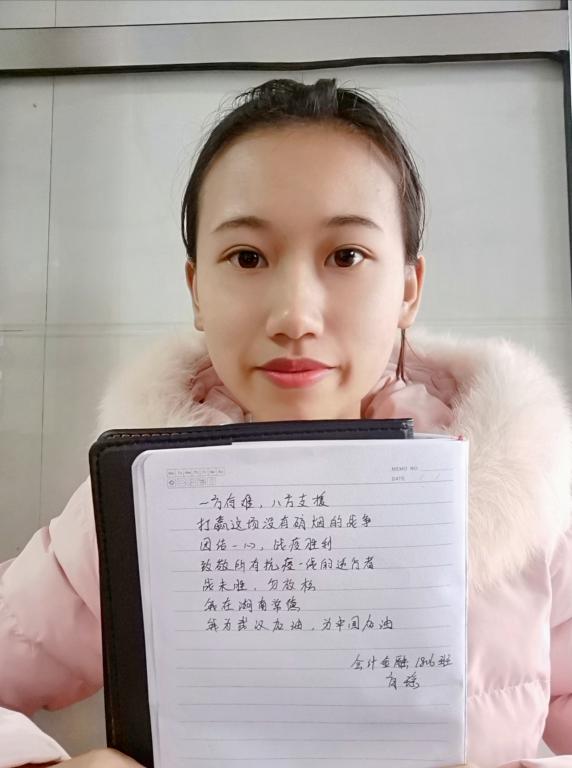 Mo Tu We Th Fr Sa Su
MEMO NO.
DATE / /
一方有难，八方支援
打赢这场没有硝烟的战争
团结一心，战疫胜利
致敬所有抗疫一线的逆行者
战未胜，勿放松
我在湖南常德
我为武汉加油，为中国加油
会计金融1806班